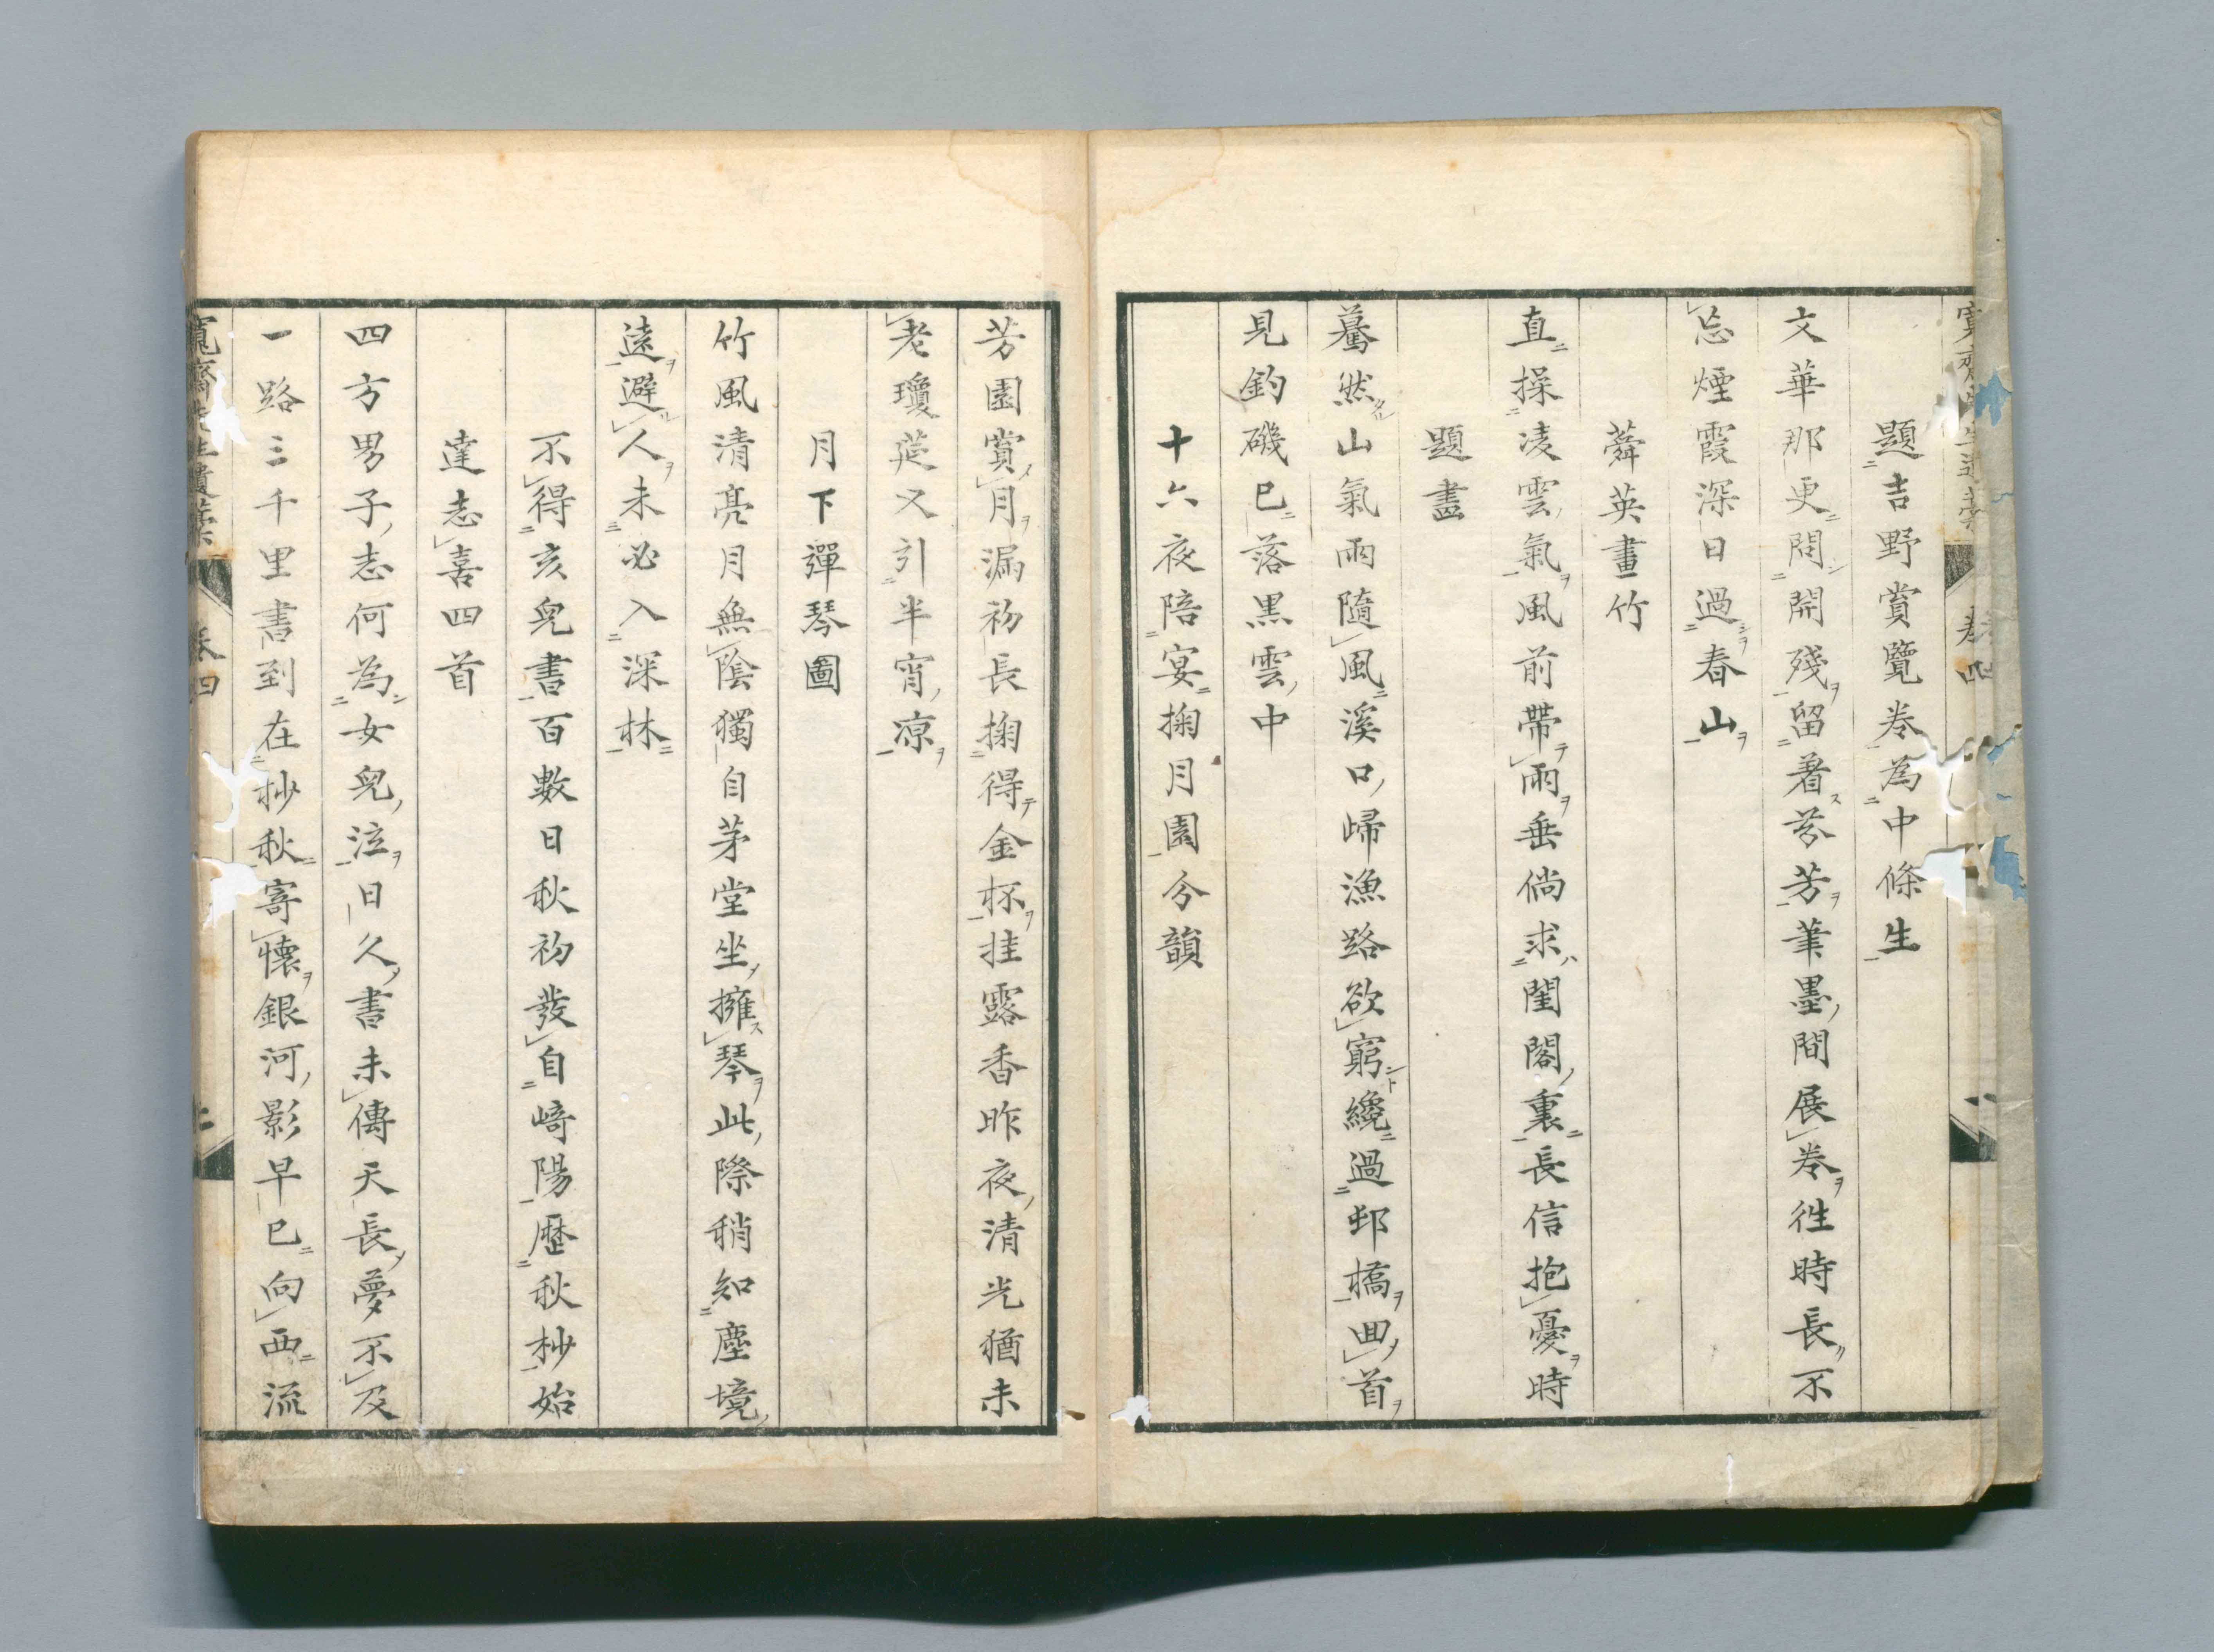 題吉野賞覽巻為中條生
文華那更問開殘留着芬芳筆墨間展巻徃時長不
忘煙霞深日過春山
蕣英畫竹
直操凌雲氣風前帶雨垂倘求閨閣裏長信抱憂時
題畫
驀然山氣雨隨風溪口歸漁路欲窮纔過邨橋回首
見釣磯已落黒雲中
十六夜陪宴掬月園分韻
芳園賞月漏初長掬得金杯挂露香昨夜清光猶未
老瓊莚又引半宵凉
月下彈琴圖
竹風清亮月無陰獨自茅堂坐擁琴此際稍知塵境
遠避人未必入深林
不得亥児書百數日秋初發自﨑陽歴秋杪始
達志喜四首
四方男子志何為女児泣日久書未傳天長夢不及
一路三千里書到在抄秋寄懐銀河影早已向西流
寬齋先生遺稾 巻四